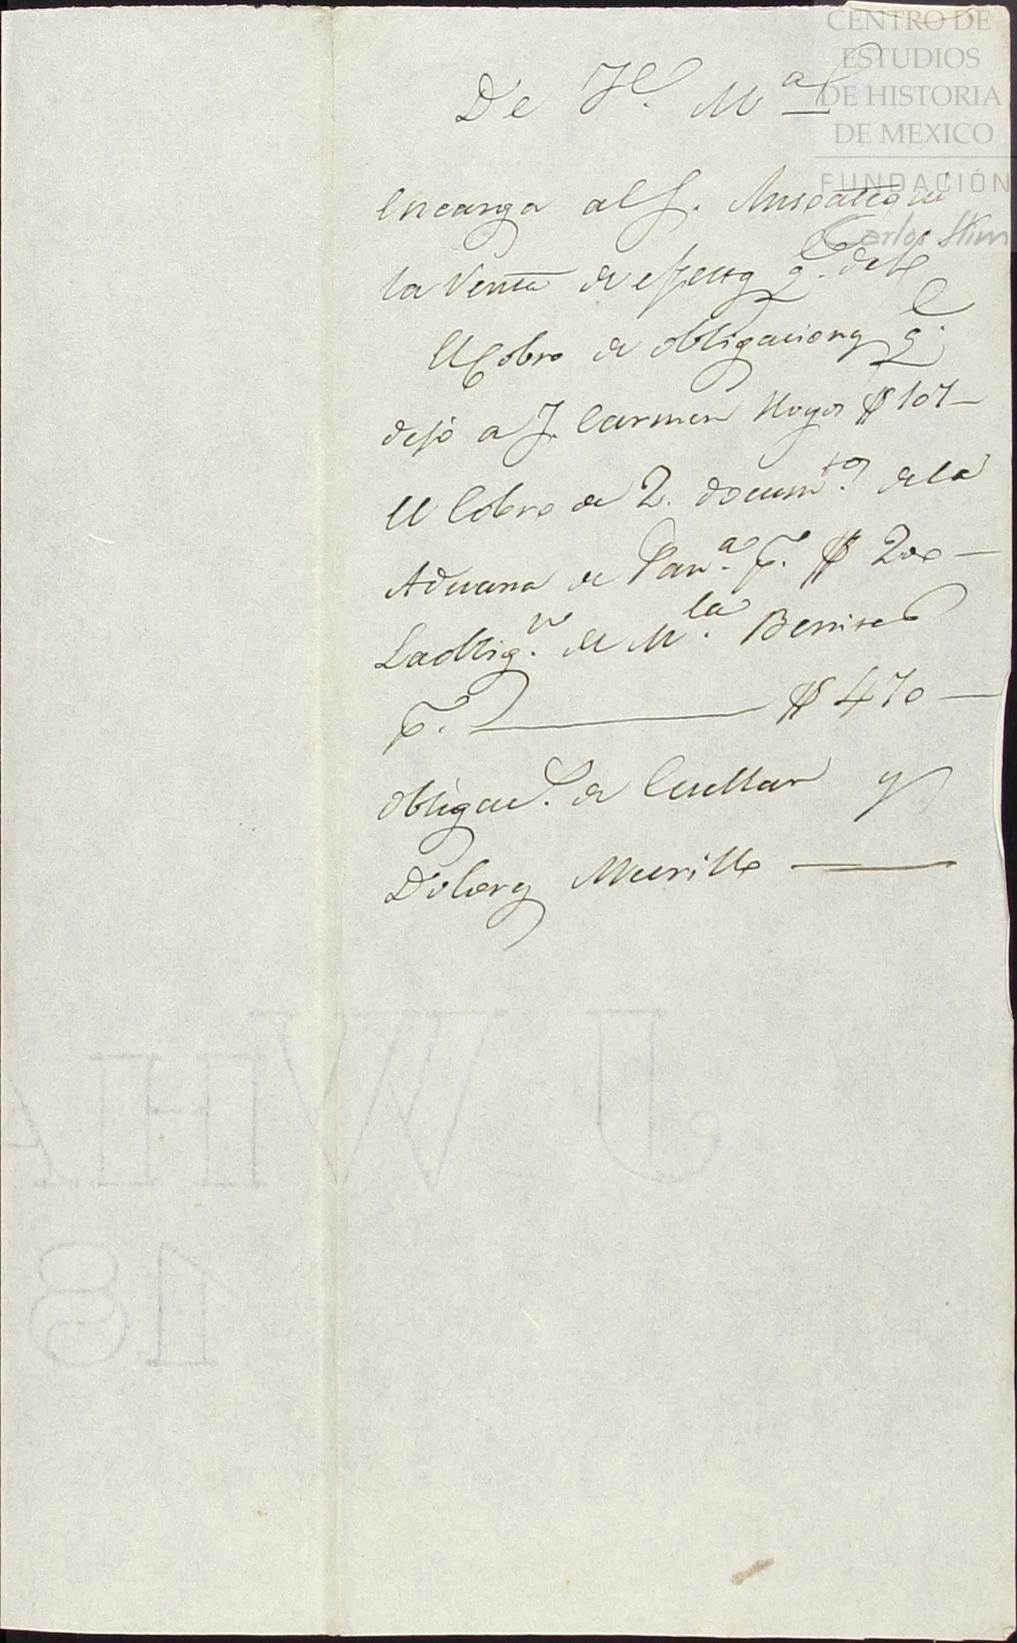 CENTRO DE
ESTUDIOS
DE HISTORIA
DE MEXICO
FUNDACIÓN
Carlos Slim
De Je. Ma
encarga al S.
la Venta de efectos q.e dejo
El Cobro de obligaciones q.e
dejó a J. Carmen Hoyos $ 107—
El Cobro de 2. docum.tos de la
Aduana de Pan.a p.r $ 200—
La oblig.n de M.la Benites
p.r $ 470—
Obligac.s de Cuellar y
Dolores Murillo
J WHA
18